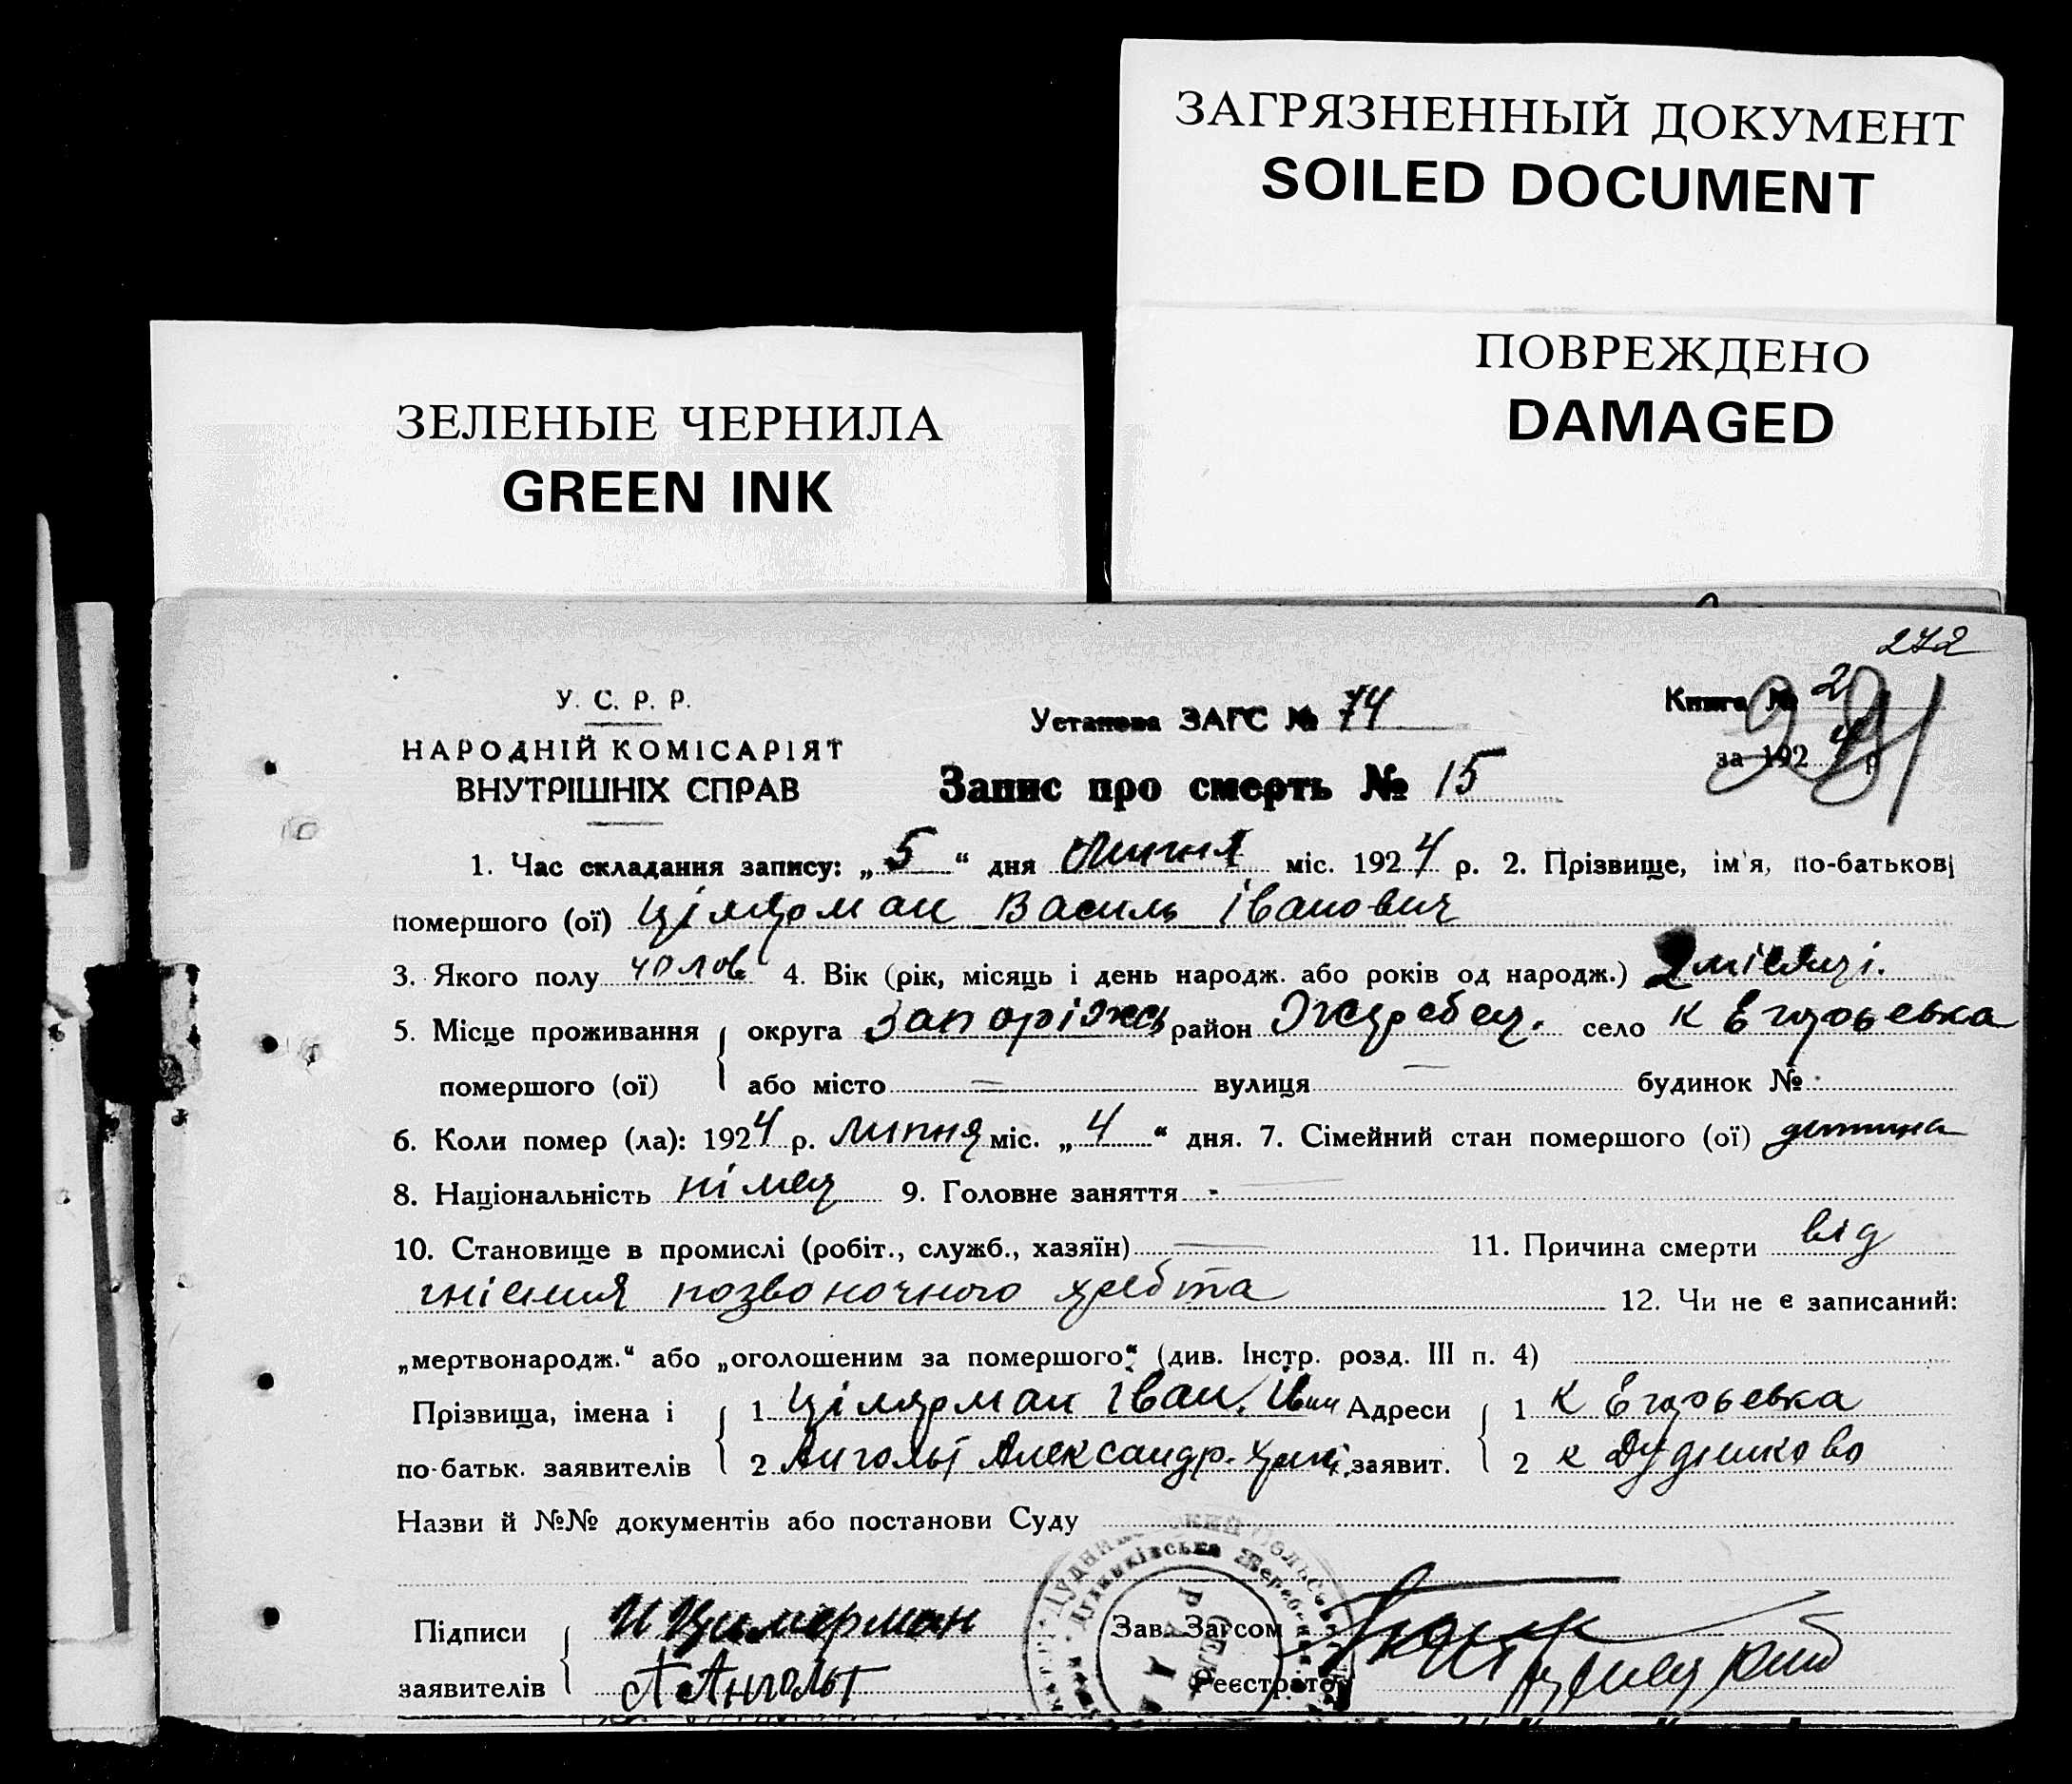 ЗАГРЯЗНЕННЫЙ ДОКУМЕНТ
SOILED DOCUMENT
ПОВРЕЖДЕНО
DAMAGED
ЗЕЛЕНЫЕ ЧЕРНИЛА
GREEN INK
272
У. С. Р. Р.
НАРОДНІЙ КОМІСАРІЯТ
ВНУТРІШНІХ СПРАВ
Установа ЗАГС № 74
Книга № 2
за 1924 р
291
Запис про смерть № 15
1. Час складання запису: „5“ дня Липня міс. 1924 р. 2. Прізвище, ім'я, по-батькові
помершого (ої) Цімерман Василь Іванович
3. Якого полу чолов. 4. Вік (рік, місяць і день народж. або років од народж.) 2 місяці.
5. Місце проживання округа Запоріжь район Жеребец. село К Егорьевка
помершого (ої) або місто — вулиця — будинок №
6. Коли помер (ла): 1924 р. липня міс. „4“ дня. 7. Сімейний стан помершого (ої) дитина
8. Національність німец 9. Головне заняття - —
10. Становище в промислі (робіт., служб., хазяїн) — 11. Причина смерти від
гнієння позвоночного хребта 12. Чи не є записаний:
„мертвонародж.“ або „оголошеним за помершого“ (див. Інстр. розд. III п. 4)
Прізвища, імена і 1 Цімерман Іван. Іван Адреси 1 К Егорьевка
по-батьк. заявителів 2 Ангольт Александр. заявит. 2 к Дудниково
Назви й №№ документів або постанови Суду
Підписи И Цимерман Зав. Загсом
заявителів А Ангольт Реєстратор